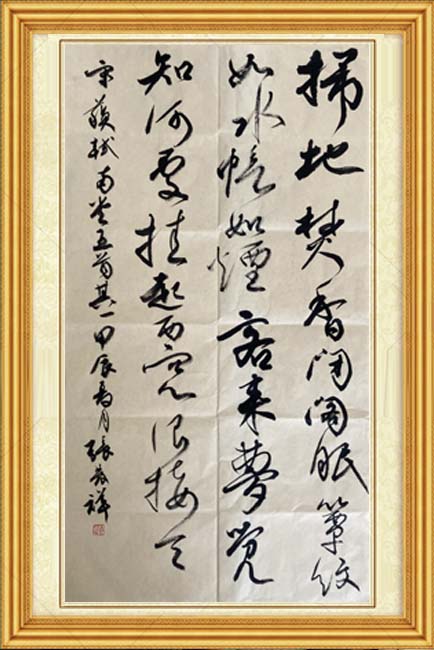 掃地焚香闭阁眠簟纹
如水帳如煙客来夢觉
知何處挂起西窗浪接天
宋蘇軾南堂五首其一甲辰月張祥